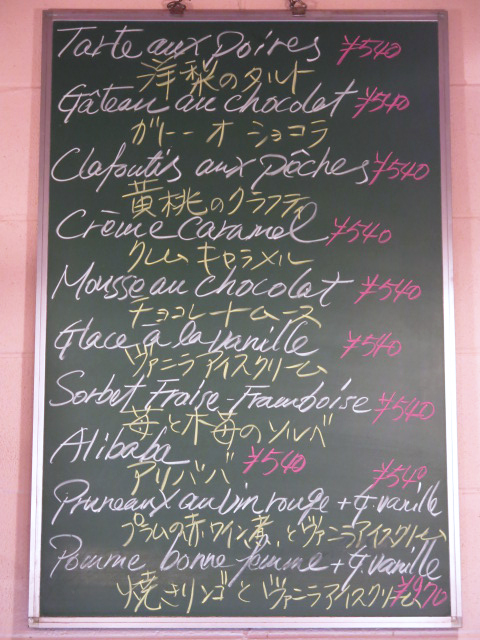 Tarte aux poires ¥540
洋梨のタルト
Gâteau au chocolat ¥540
ガトーオショコラ
Clafoutis aux pêches ¥540
黄桃のクラフティ
Crème caramel ¥540
クレムキャラメル
Mousse au chocolat ¥540
チョコレートムース
Glace à la vanille ¥540
ヴァニラアイスクリーム
Sorbet Fraise-Framboise ¥540
苺と木苺のソルベ
Alibaba ¥540
アリババ ¥540
Pruneaux au vin rouge + g. vanille
プラムの赤ワイン煮とヴァニラアイスクリーム
Pomme bonne femme + g. vanille
焼きリンゴとヴァニラアイスクリーム ¥970